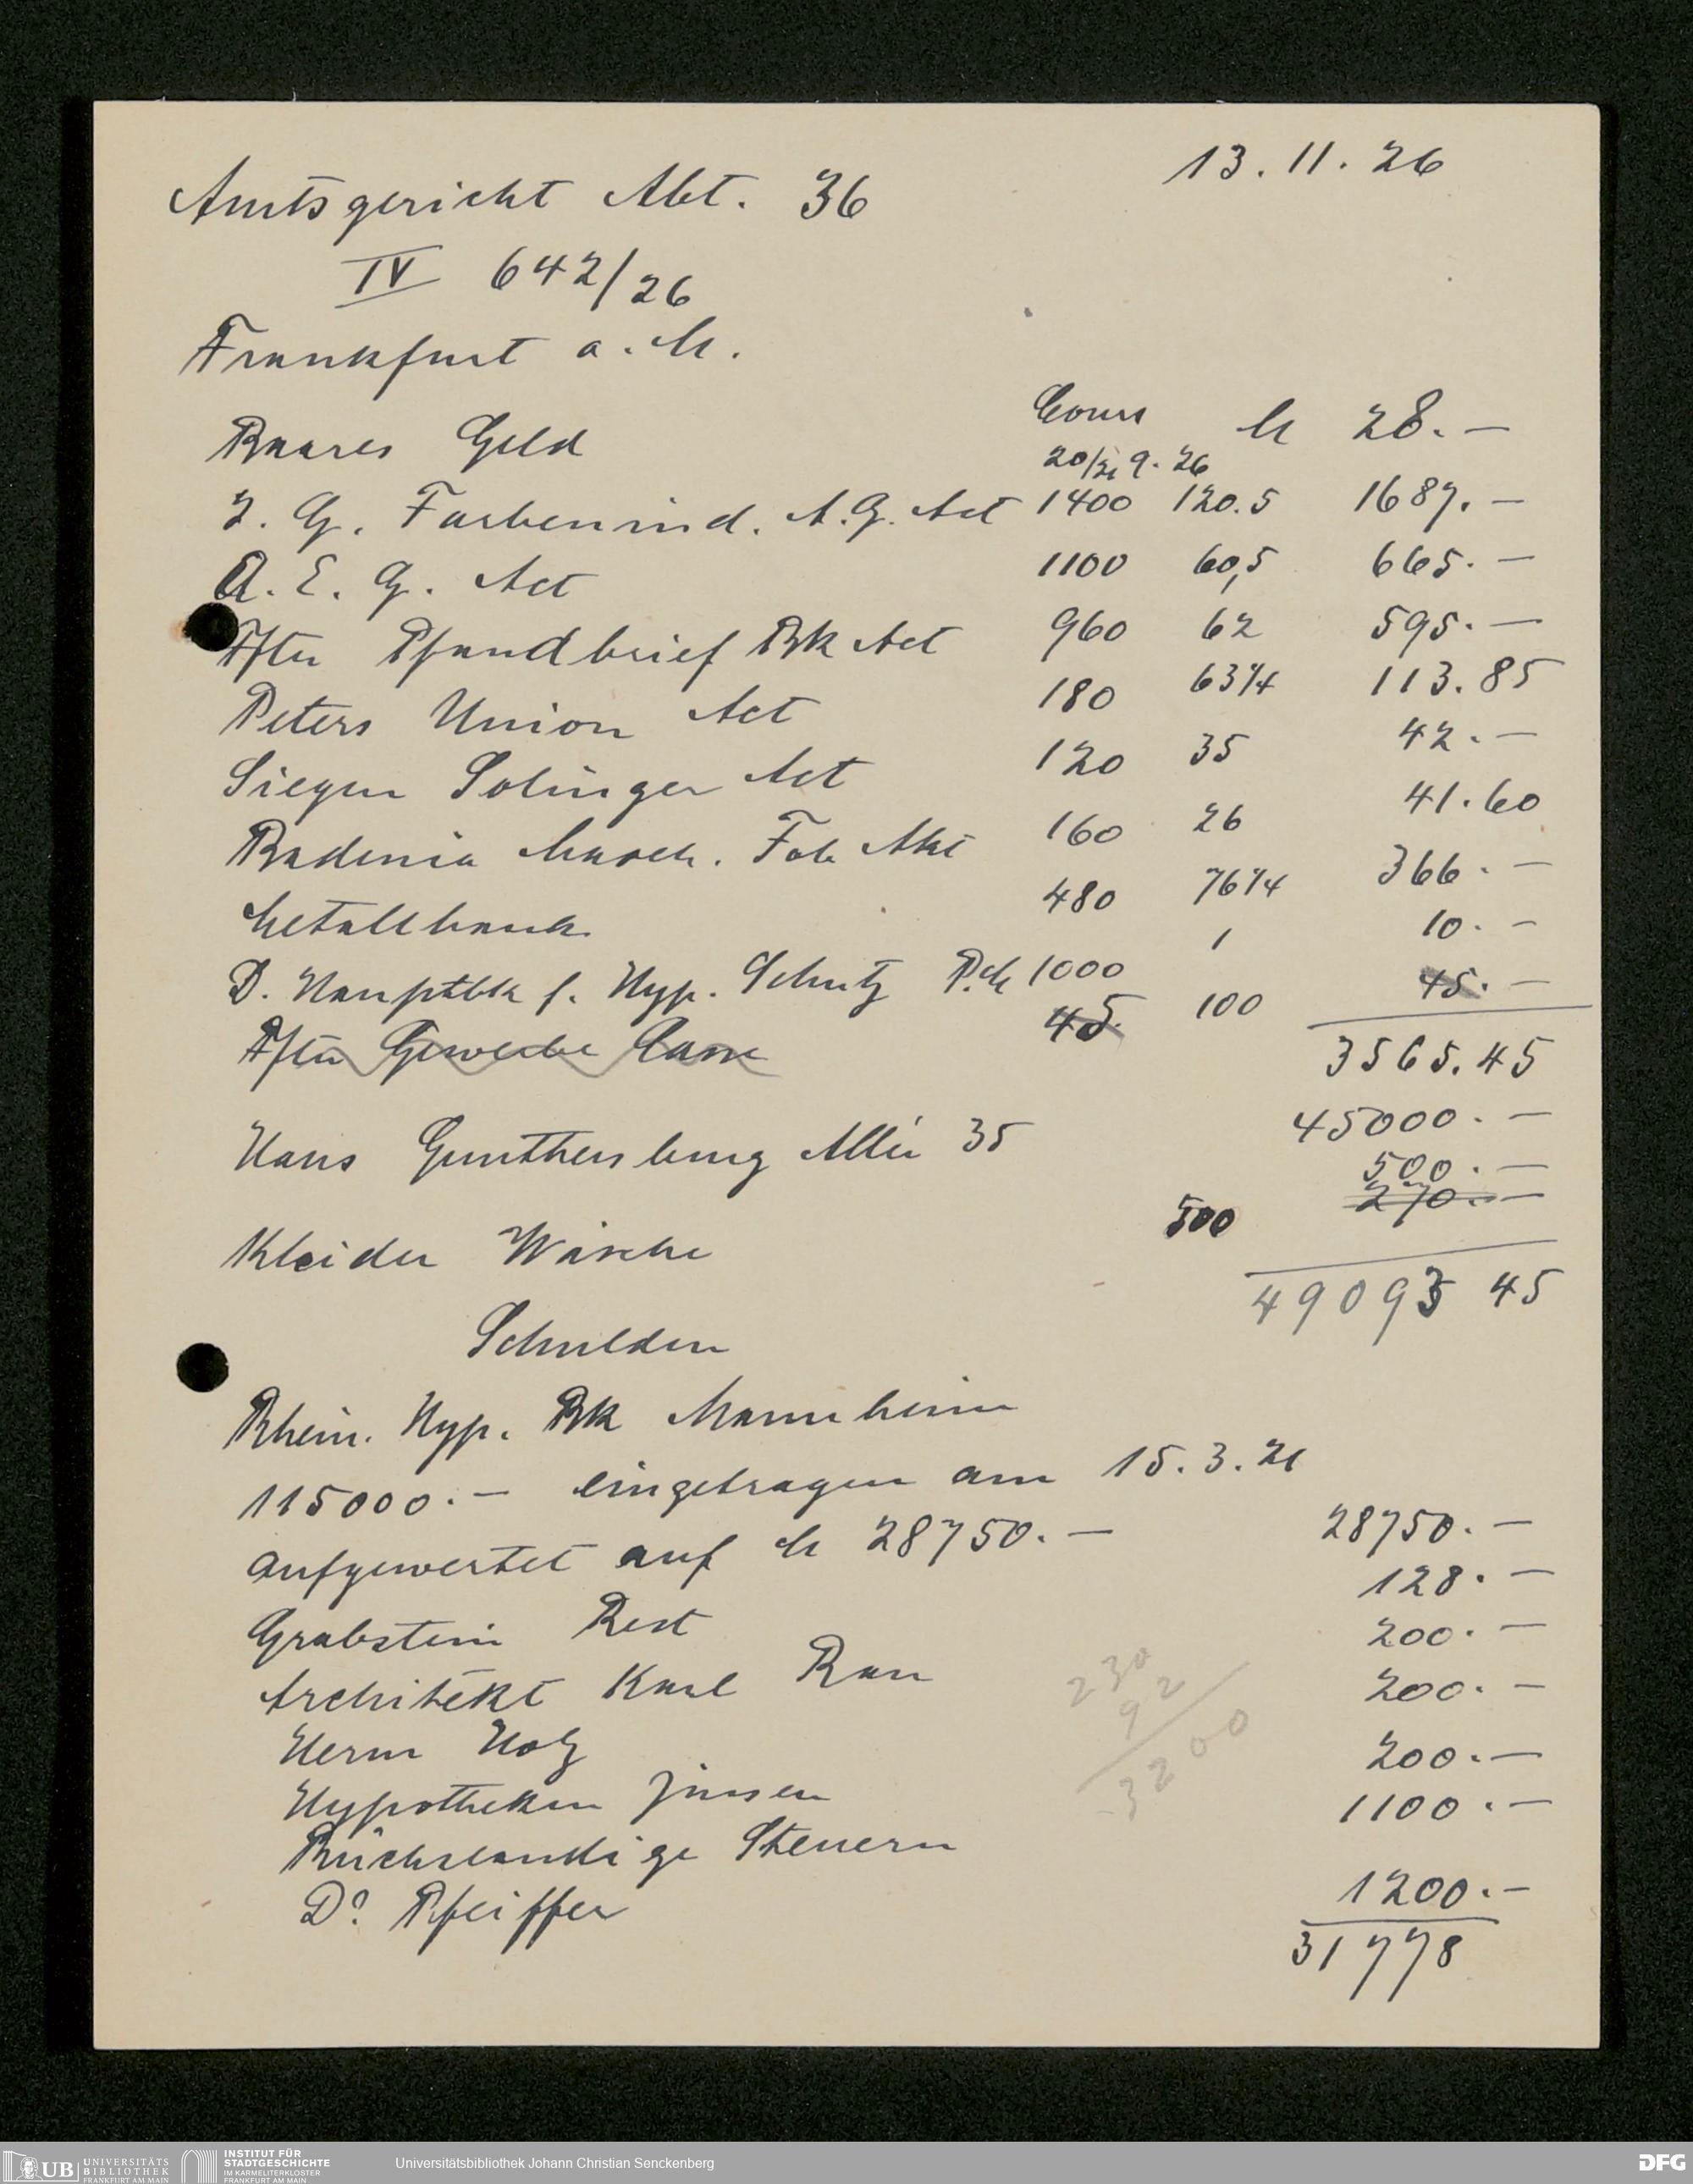 13. 11. 26
Amtsgericht Abt. 36
IV 642/26
Frankfurt a. M.
Cours
Baares Geld M 28.—
20/21 9. 26
I. G. Farbenind. A.G. Act 1400 120.5 1687.—
A. E. G. Act 1100 60,5 665.—
Ffter Pfandbrief Bk Act 960 62 595.—
Peters Union Act 180 63 1/4 113.85
Siegen Solinger Act 120 35 42.—
Badenia Masch. Fab Akt 160 26 41.60
Metallbank 480 76 1/4 366.—
D. Hauptbk f. Hyp. Schutz P.M 1000 1 10.—
Ffter Gewerbe Casse 45 100 45.—
3565.45
Haus Gunthersburg Allee 35 45000.—
500.—
270.—
Kleider Wäsche 500
49093 45
Schulden
Rhein. Hyp. Bk Mannheim
115000.— eingetragen am 15. 3. 21
aufgewertet auf M 28750.— 28750.—
Grabstein Rest 128.—
Architekt Karl Rau 200.—
Herm Holz 200.—
Hypotheken Zinsen 200.—
Rückständige Steuern 1100.—
Dr. Pfeiffer 1200.—
31778
230
92
3200
UB UNIVERSITÄTS BIBLIOTHEK FRANKFURT AM MAIN
INSTITUT FÜR STADTGESCHICHTE IM KARMELITERKLOSTER FRANKFURT AM MAIN
Universitätsbibliothek Johann Christian Senckenberg
DFG